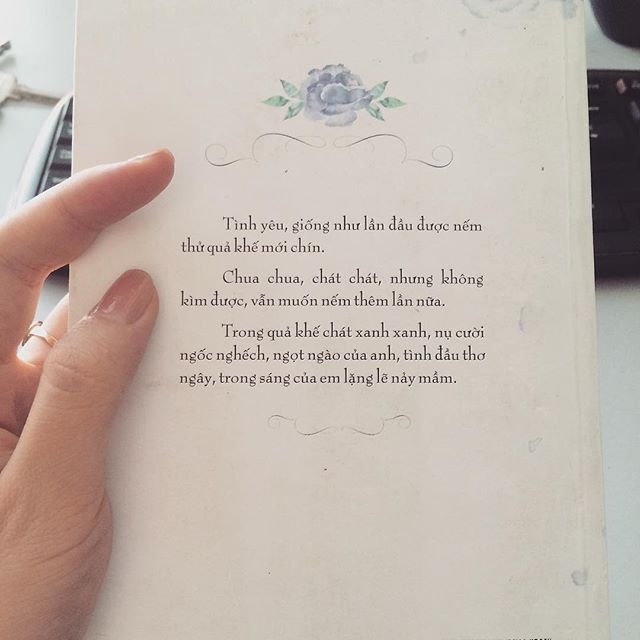 Tình yêu, giống như lần đầu được nếm
thử quả khế mới chín.
Chua chua, chát chát, nhưng không
kìm được, vẫn muốn nếm thêm lần nữa.
Trong quả khế chát xanh xanh, nụ cười
ngốc nghếch, ngọt ngào của anh, tình đầu thơ
ngây, trong sáng của em lặng lẽ nảy mầm.